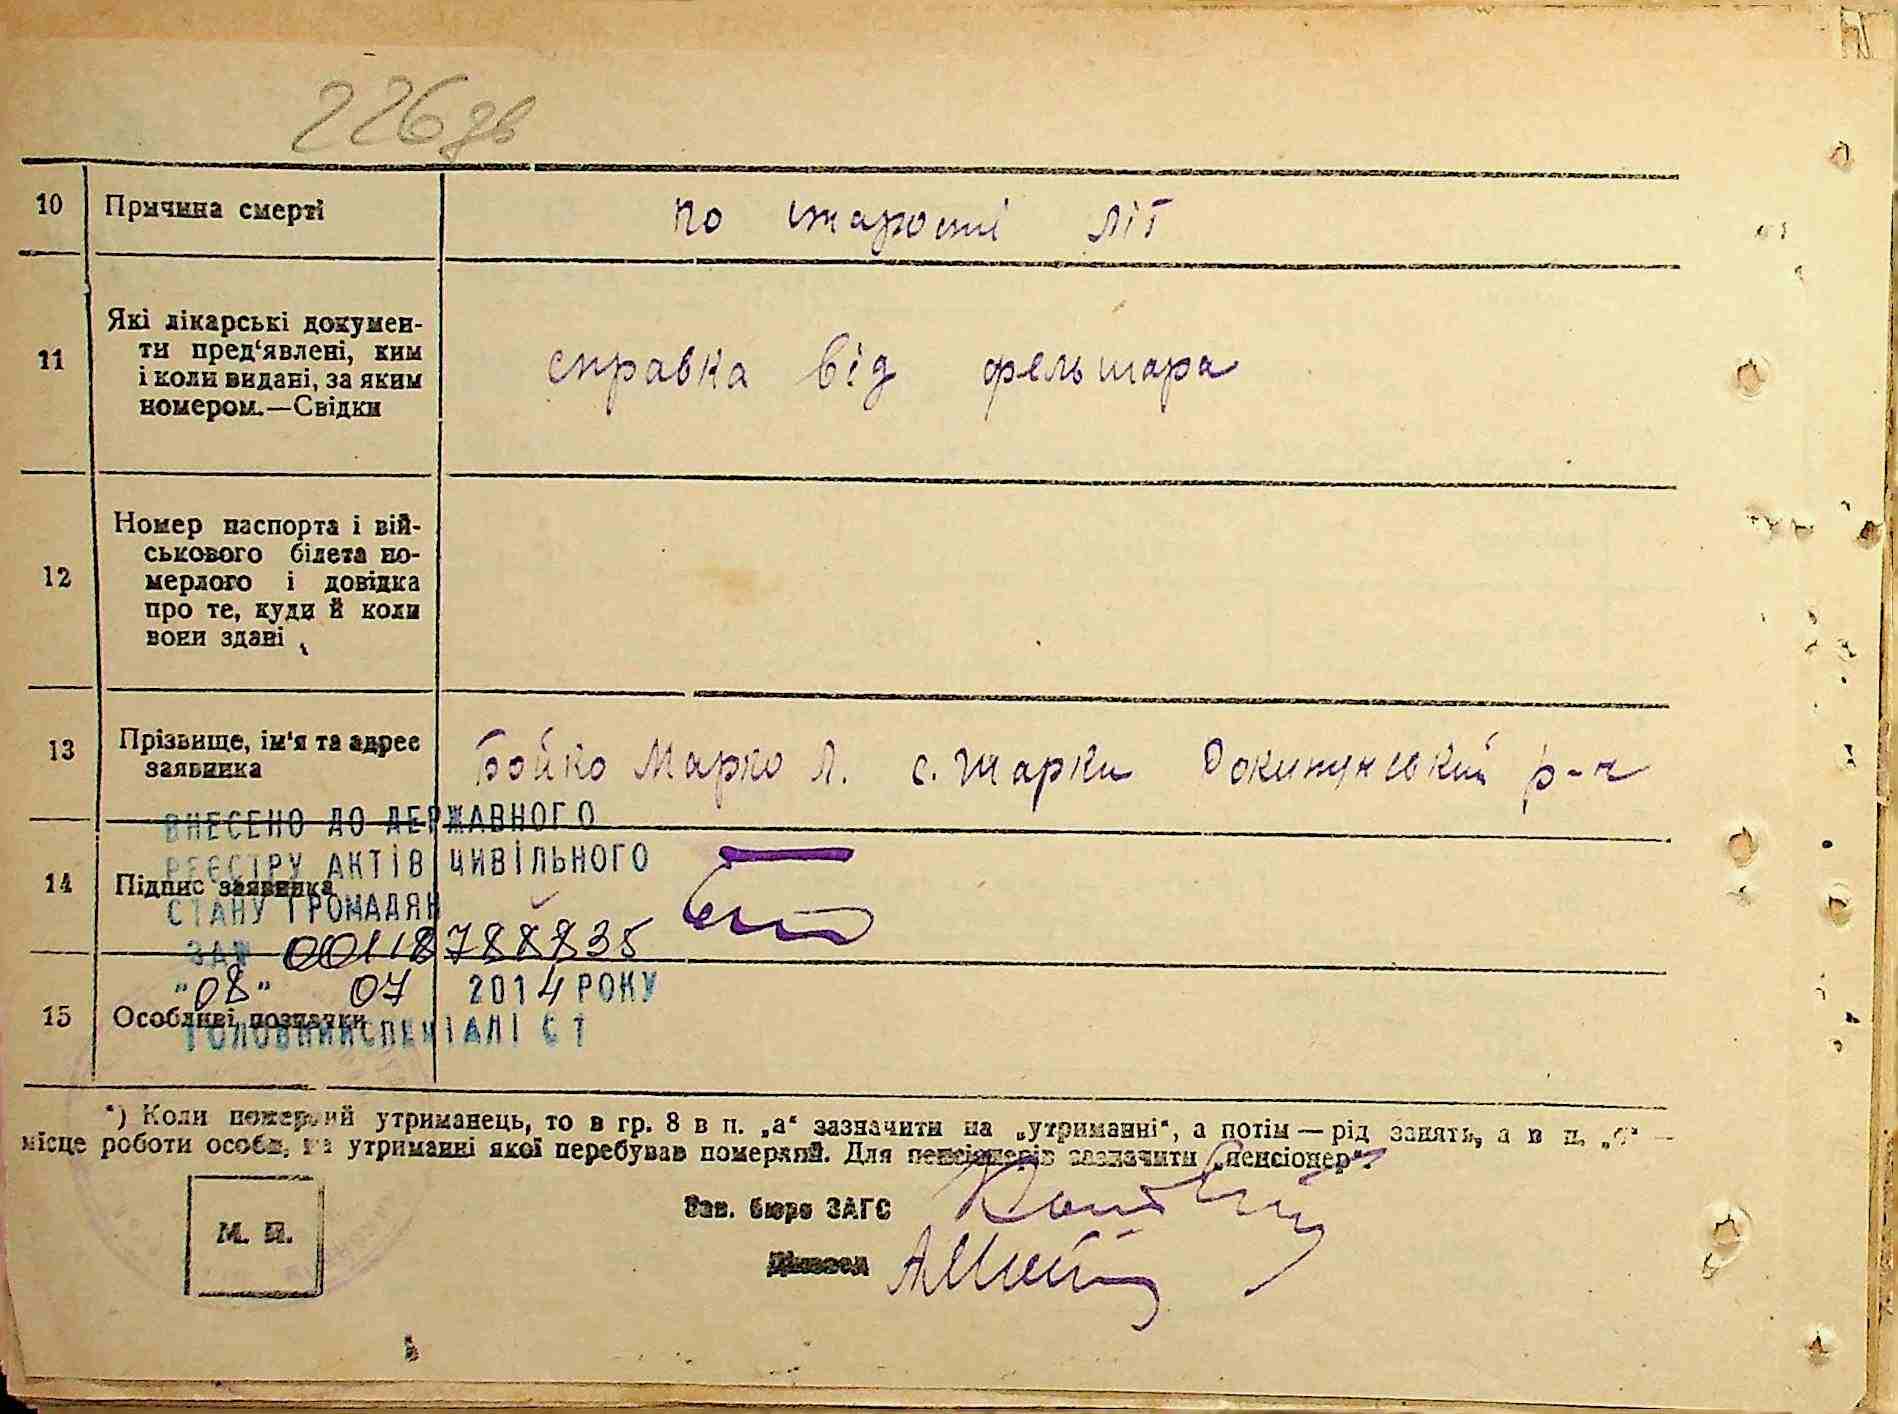 226 зв
10 Причина смерті по старості літ
11 Які лікарські докумен-
ти пред'явлені, ким
і коли видані, за яким
номером.—Свідки
справка від фельшара
12 Номер паспорта і вій-
ськового білета по-
мерлого і довідка
про те, куди й коли
вони здані
13 Прізвище, ім'я та адрес
заявника
Бойко Марко Л. с. Шарки Рокитнянський р-н
ВНЕСЕНО ДО ДЕРЖАВНОГО
РЕЄСТРУ АКТІВ ЦИВІЛЬНОГО
14 Підпис заявника
СТАНУ ГРОМАДЯН
ЗА № 00118788835
"08" 07 2014 РОКУ
15 Особливі позначки
ГОЛОВНИЙ СПЕЦІАЛІСТ
*) Коли померлий утриманець, то в гр. 8 в п. „а“ зазначити на „утриманні“, а потім — рід занять, а в п. —
місце роботи особи, на утриманні якої перебував померлий. Для пенсіонерів зазначити „пенсіонер“.
Зав. бюро ЗАГС
М. П.
Діловод